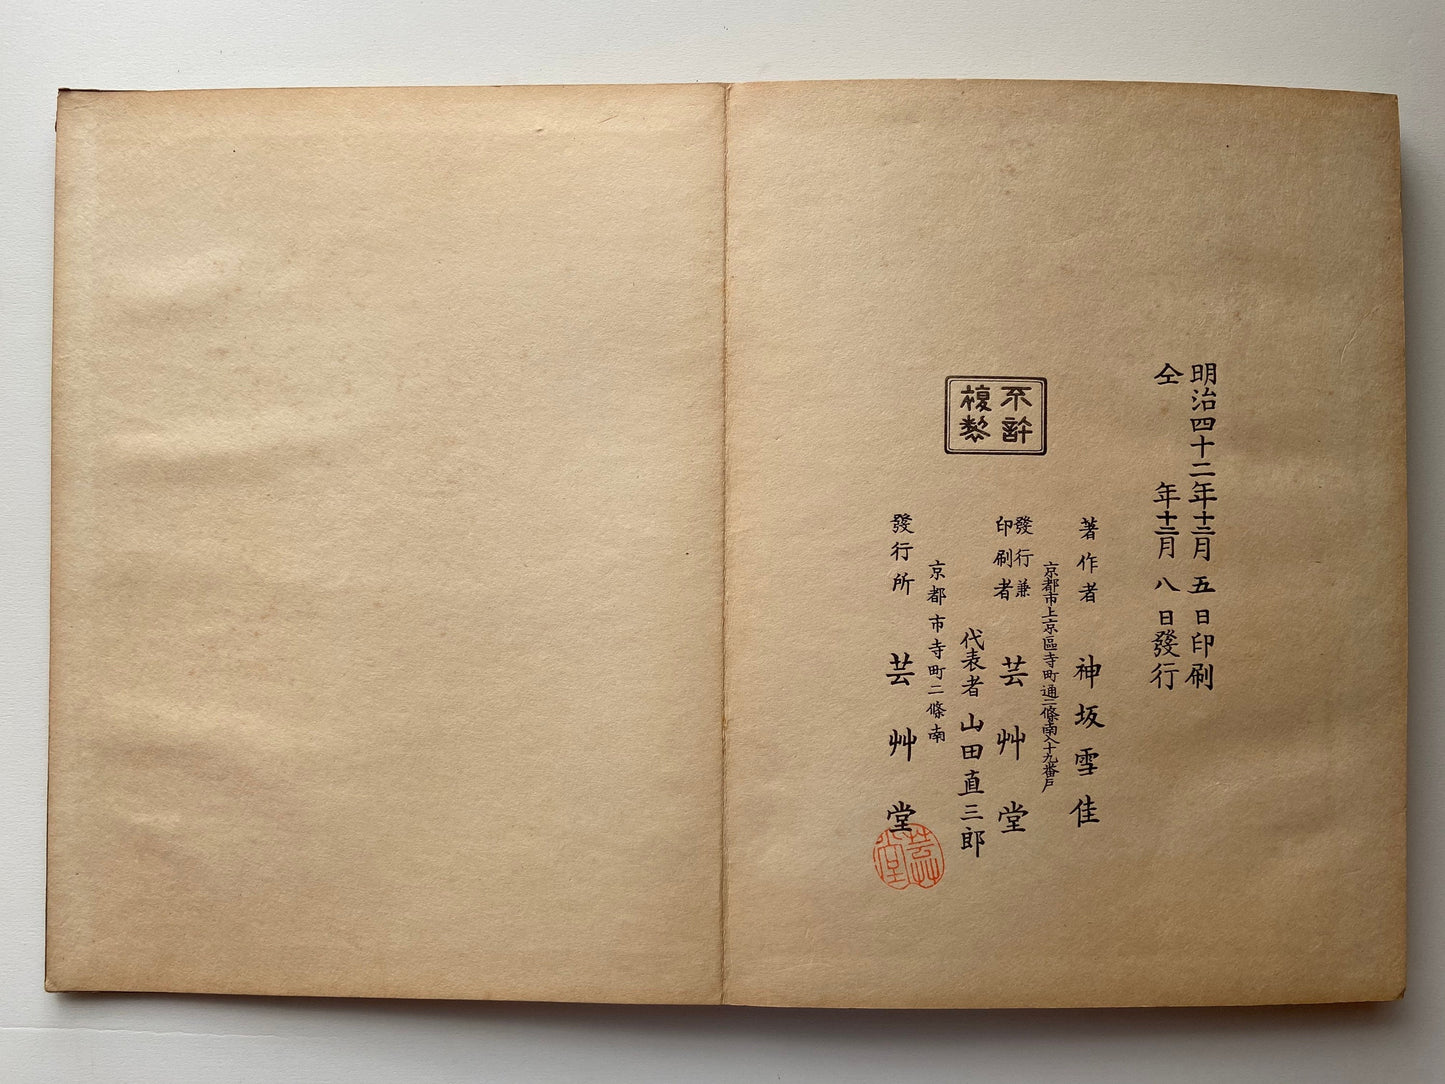 明治四十二年十二月五日印刷
仝年十二月八日發行
著作者 神坂雪佳
京都市上京區寺町通二條南入十九番戸
發行兼
印刷者 芸艸堂
代表者 山田直三郎
京都市寺町二條南
發行所 芸艸堂
不許
複製
芸艸
堂